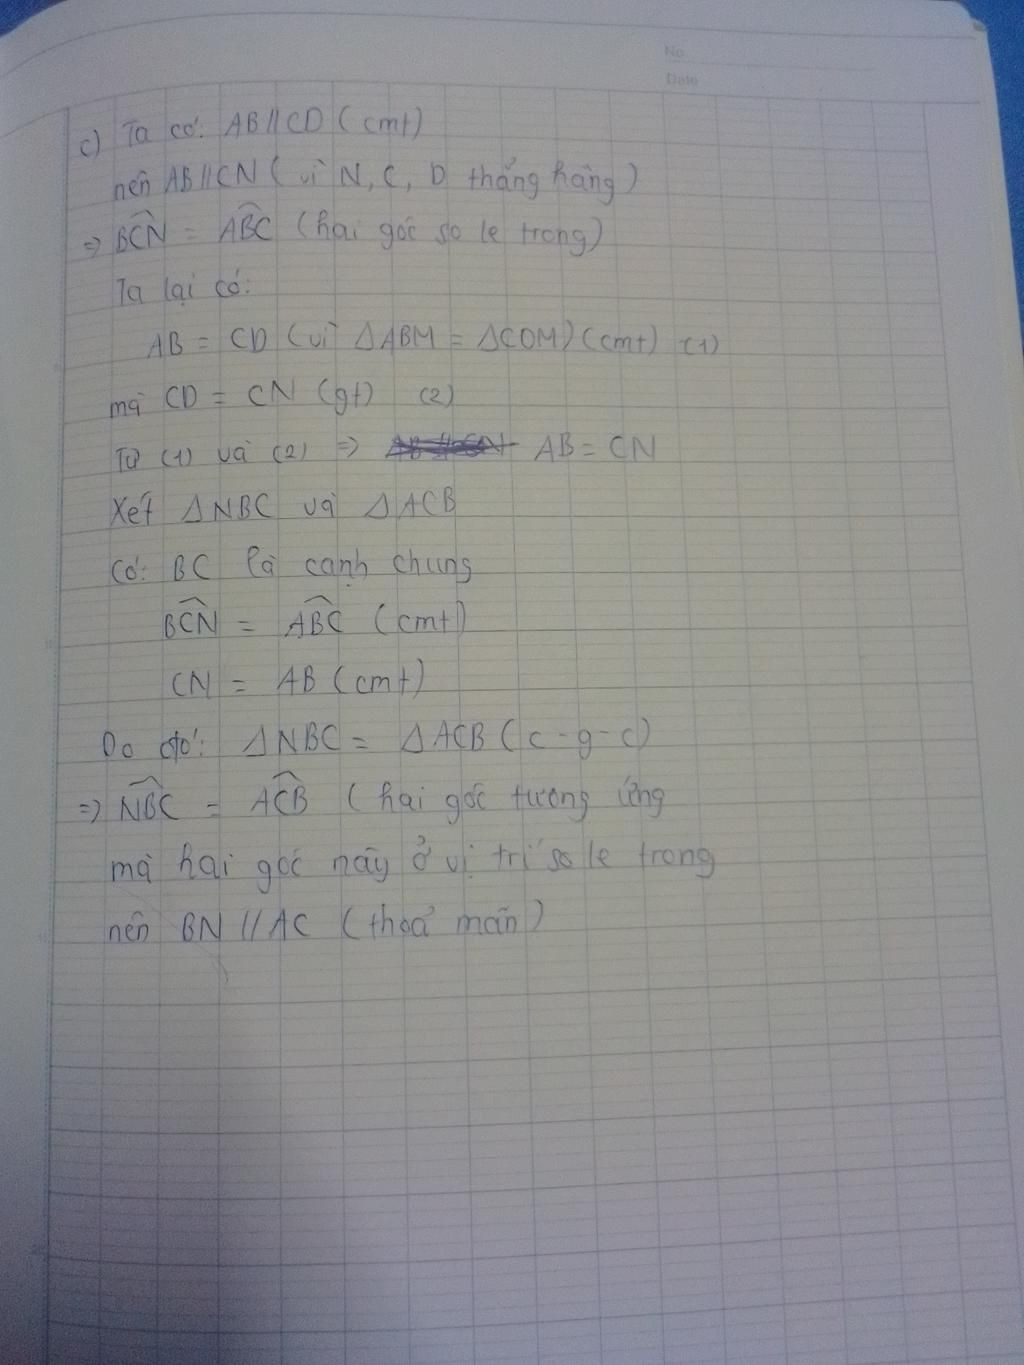 No
Date
c) Ta có: AB // CD (cmt)
nên AB // CN (vì N, C, D thẳng hàng)
=> BCN = ABC (hai góc so le trong)
Ta lại có:
AB = CD (vì ΔABM = ΔCDM) (cmt) (1)
mà CD = CN (gt) (2)
Từ (1) và (2) => AB = CN
Xét ΔNBC và ΔACB
Có: BC là cạnh chung
BCN = ABC (cmt)
CN = AB (cmt)
Do đó: ΔNBC = ΔACB (c-g-c)
=> NBC = ACB (hai góc tương ứng
mà hai góc này ở vị trí so le trong
nên BN // AC (thoả mãn)